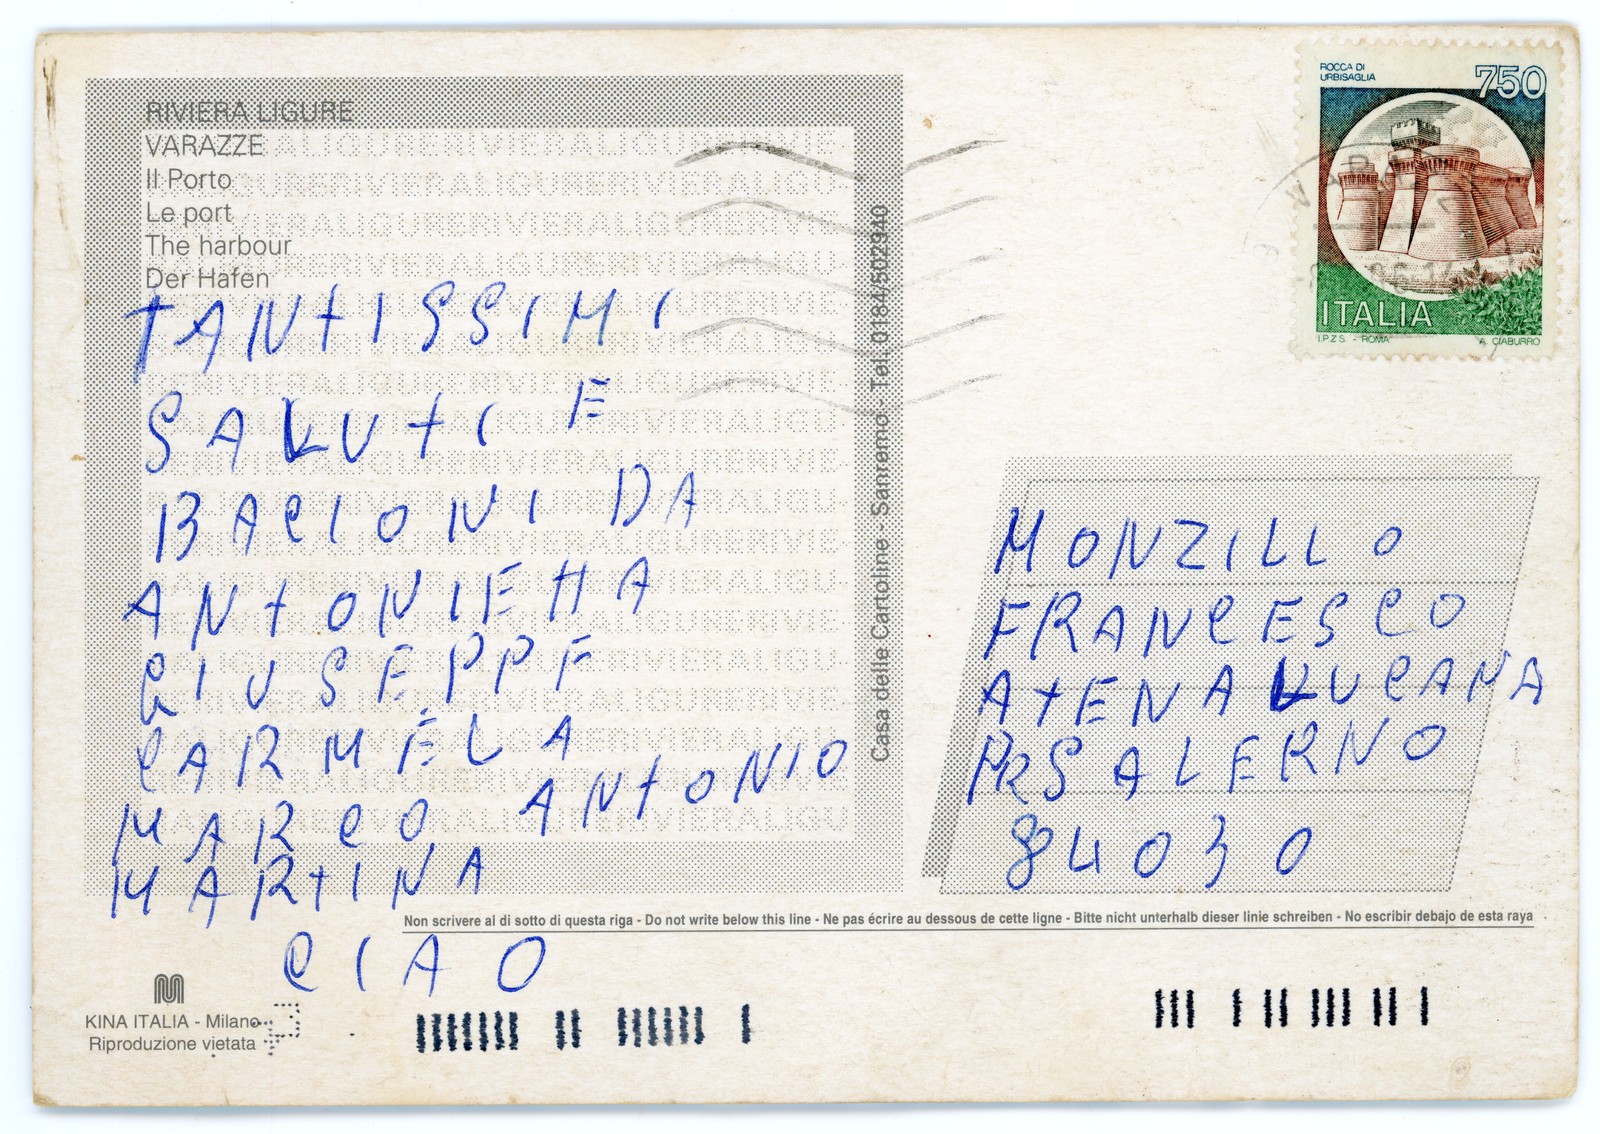 RIVIERA LIGURE
VARAZZE
Il Porto
Le port
The harbour
Der Hafen
TANTISSIMI
SALUTI E
BACIONI DA
ANTONIETTA
GIUSEPPE
CARMELA
MARCO ANTONIO
MARTINA
CIAO
KINA ITALIA - Milano
Riproduzione vietata
Casa delle Cartoline - Sanremo - Tel. 0184/502940
ROCCA DI
URBISAGLIA
750
ITALIA
I.P.Z.S. - ROMA
A. CIABURRO
MONZILLO
FRANCESCO
ATENA LUCANA
PR SALERNO
84030
Non scrivere al di sotto di questa riga - Do not write below this line - Ne pas écrire au dessous de cette ligne - Bitte nicht unterhalb dieser linie schreiben - No escribir debajo de esta raya